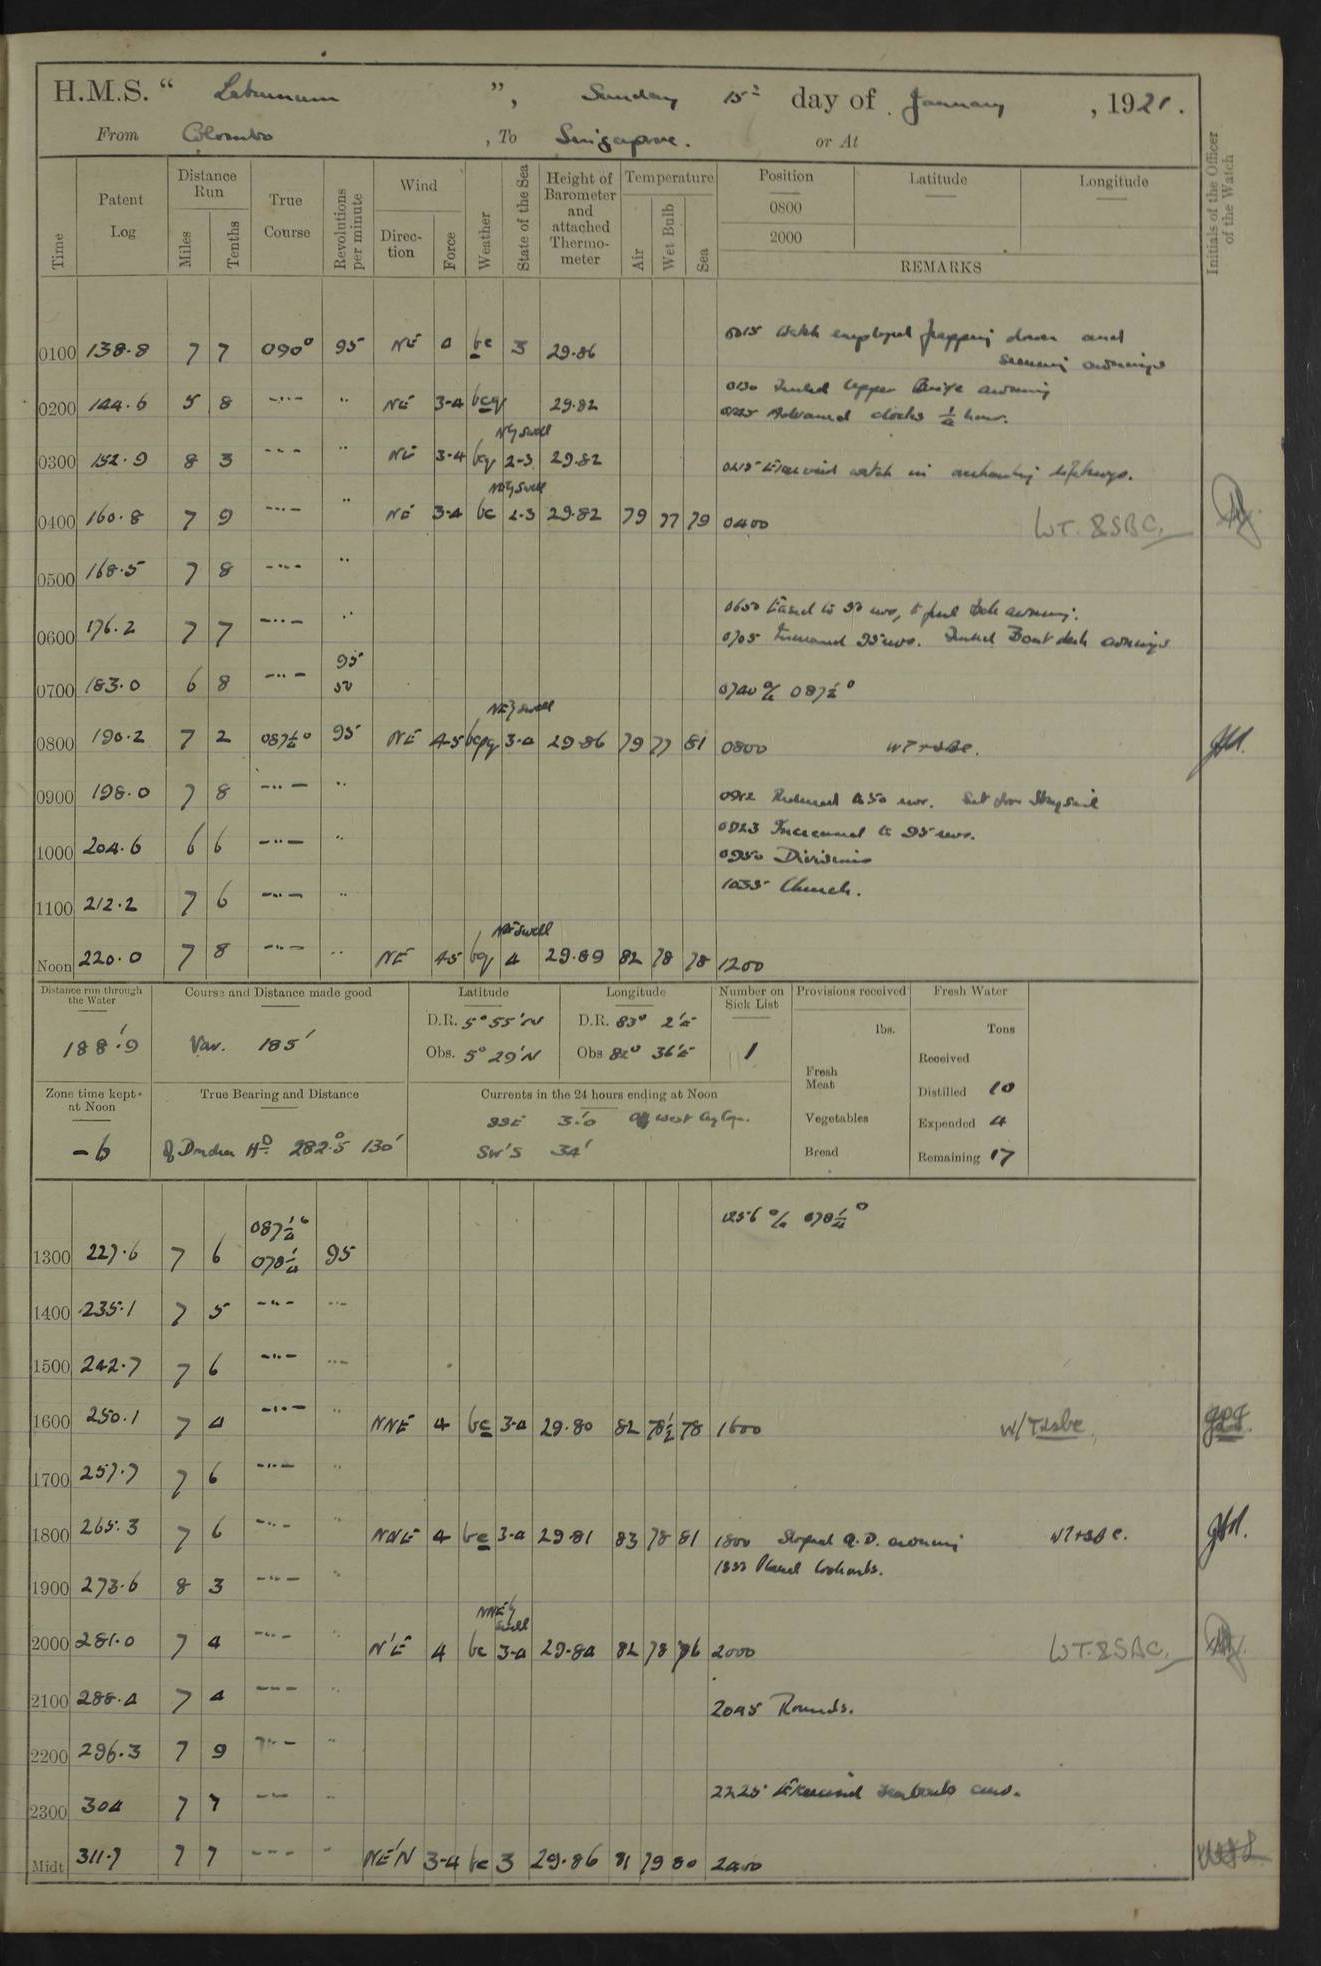 H.M.S. “ Laburnum ”, Sunday 15th day of January, 1921.
From Colombo, To Singapore. or At
Time
Patent Log
Distance Run
Miles
Tenths
True Course
Revolutions per minute
Wind
Direction
Force
Weather
State of the Sea
Height of Barometer and attached Thermometer
Temperature
Air
Wet Bulb
Sea
Position
0800
2000
Latitude
Longitude
REMARKS
Initials of the Officer of the Watch
0015 Watch employed frapping down and
securing awnings
0100 138.8 7 7 090° 95 NE 4 bc 3 29.86
0130 Furled Upper Bridge awning
0200 144.6 5 8 —"— " NE 3-4 bcq 29.82
Advanced clocks 1/4 hour.
NE'ly swell
0300 152.9 8 3 —"— " NE 3-4 bcq 2-3 29.82
Exercised watch in
NE'ly swell
0400 160.8 7 9 —"— " NE 3-4 bc 2-3 29.82 79 77 79 0400 WT. & SBC.
0500 168.5 7 8 —"— "
0650 Eased to 50 revs, to furl awning.
0600 176.2 7 7 —"— "
0705 Increased 95 revs. Furled Boat deck awnings
95
0700 183.0 6 8 —"— 50
0740 a/c 087 1/4°
NE'ly swell
0800 190.2 7 2 087 1/4° 95 NE 4-5 bcpq 3-4 29.86 79 77 81 0800 WT & SBC.
0900 198.0 7 8 —"— "
0912 Reduced to 50 revs. Set Staysail
0923 Increased to 95 revs.
1000 204.6 6 6 —"— "
0950 Divisions
1035 Church.
1100 212.2 7 6 —"— "
NE swell
Noon 220.0 7 8 —"— " NE 4-5 bq 4 29.89 82 78 78 1200
Distance run through the Water
188'.9
Course and Distance made good
Var. 185'
Latitude
D.R. 5° 55'N
Obs. 5° 29'N
Longitude
D.R. 83° 2'E
Obs 82° 36'E
Number on Sick List
1
Provisions received
lbs.
Fresh Meat
Vegetables
Bread
Fresh Water
Tons
Received
Distilled 10
Expended 4
Remaining 17
Zone time kept at Noon
-6
True Bearing and Distance
of Dondra Hd 282.5° 130'
Currents in the 24 hours ending at Noon
SSE 3'.0 Off West Ceylon.
SW'S 34'
1256 a/c 078 1/4°
087 1/4°
1300 227.6 7 6 078 1/4 95
1400 235.1 7 5 —"— "
1500 242.7 7 6 —"— "
1600 250.1 7 4 —"— " NNE 4 bc 3-4 29.80 82 78 1/2 78 1600 W/T & sbc
1700 257.7 7 6 —"— "
1800 265.3 7 6 —"— " NNE 4 bc 3-4 29.81 83 78 81 1800 Sloped Q.D. awning WT & SBC.
Placed lookouts.
1900 273.6 8 3 —"— "
NNE'ly swell
2000 281.0 7 4 —"— " N'E 4 bc 3-4 29.84 82 78 76 2000 WT. & SBC.
2100 288.4 7 4 —"— "
2045 Rounds.
2200 296.3 7 9 —"— "
2225 Exercised seaboats crew.
2300 304 7 7 —"— "
Midt 311.7 7 7 —"— " NE'N 3-4 bc 3 29.86 81 79 80 2400